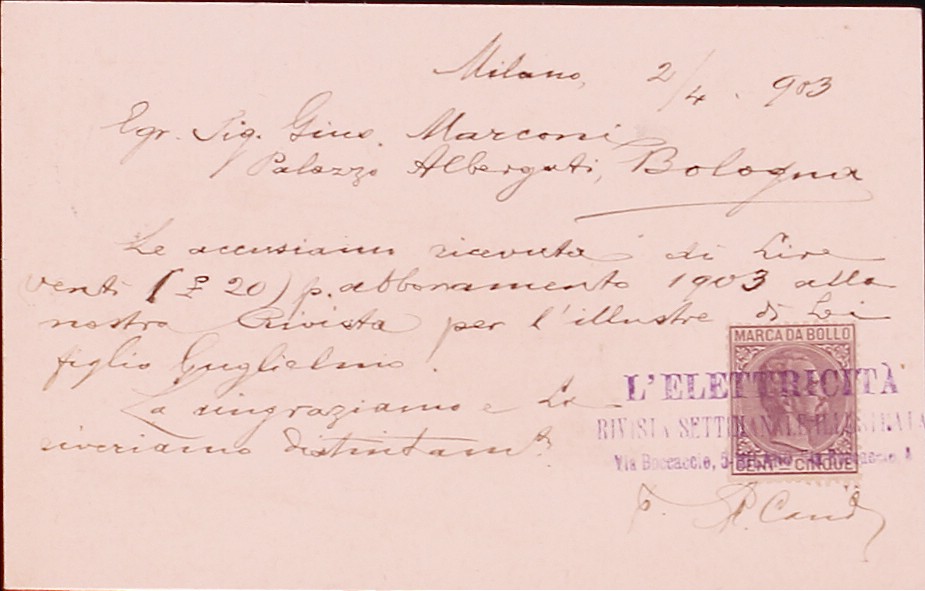 Milano, 2/4. 903
Egr. Sig. Gius. Marconi
Palazzo Albergati, Bologna
Le accusiamo ricevuta di Lire
venti (£ 20) p. abbonamento 1903 alla
nostra Rivista per l'illustre di Lei
figlio Guglielmo.
La ringraziamo e La
riveriamo distintam.te
MARCA DA BOLLO
L'ELETTRICITÀ
RIVISTA SETTIMANALE ILLUSTRATA
Via Boccaccio, 5
CENT. CINQUE
p.